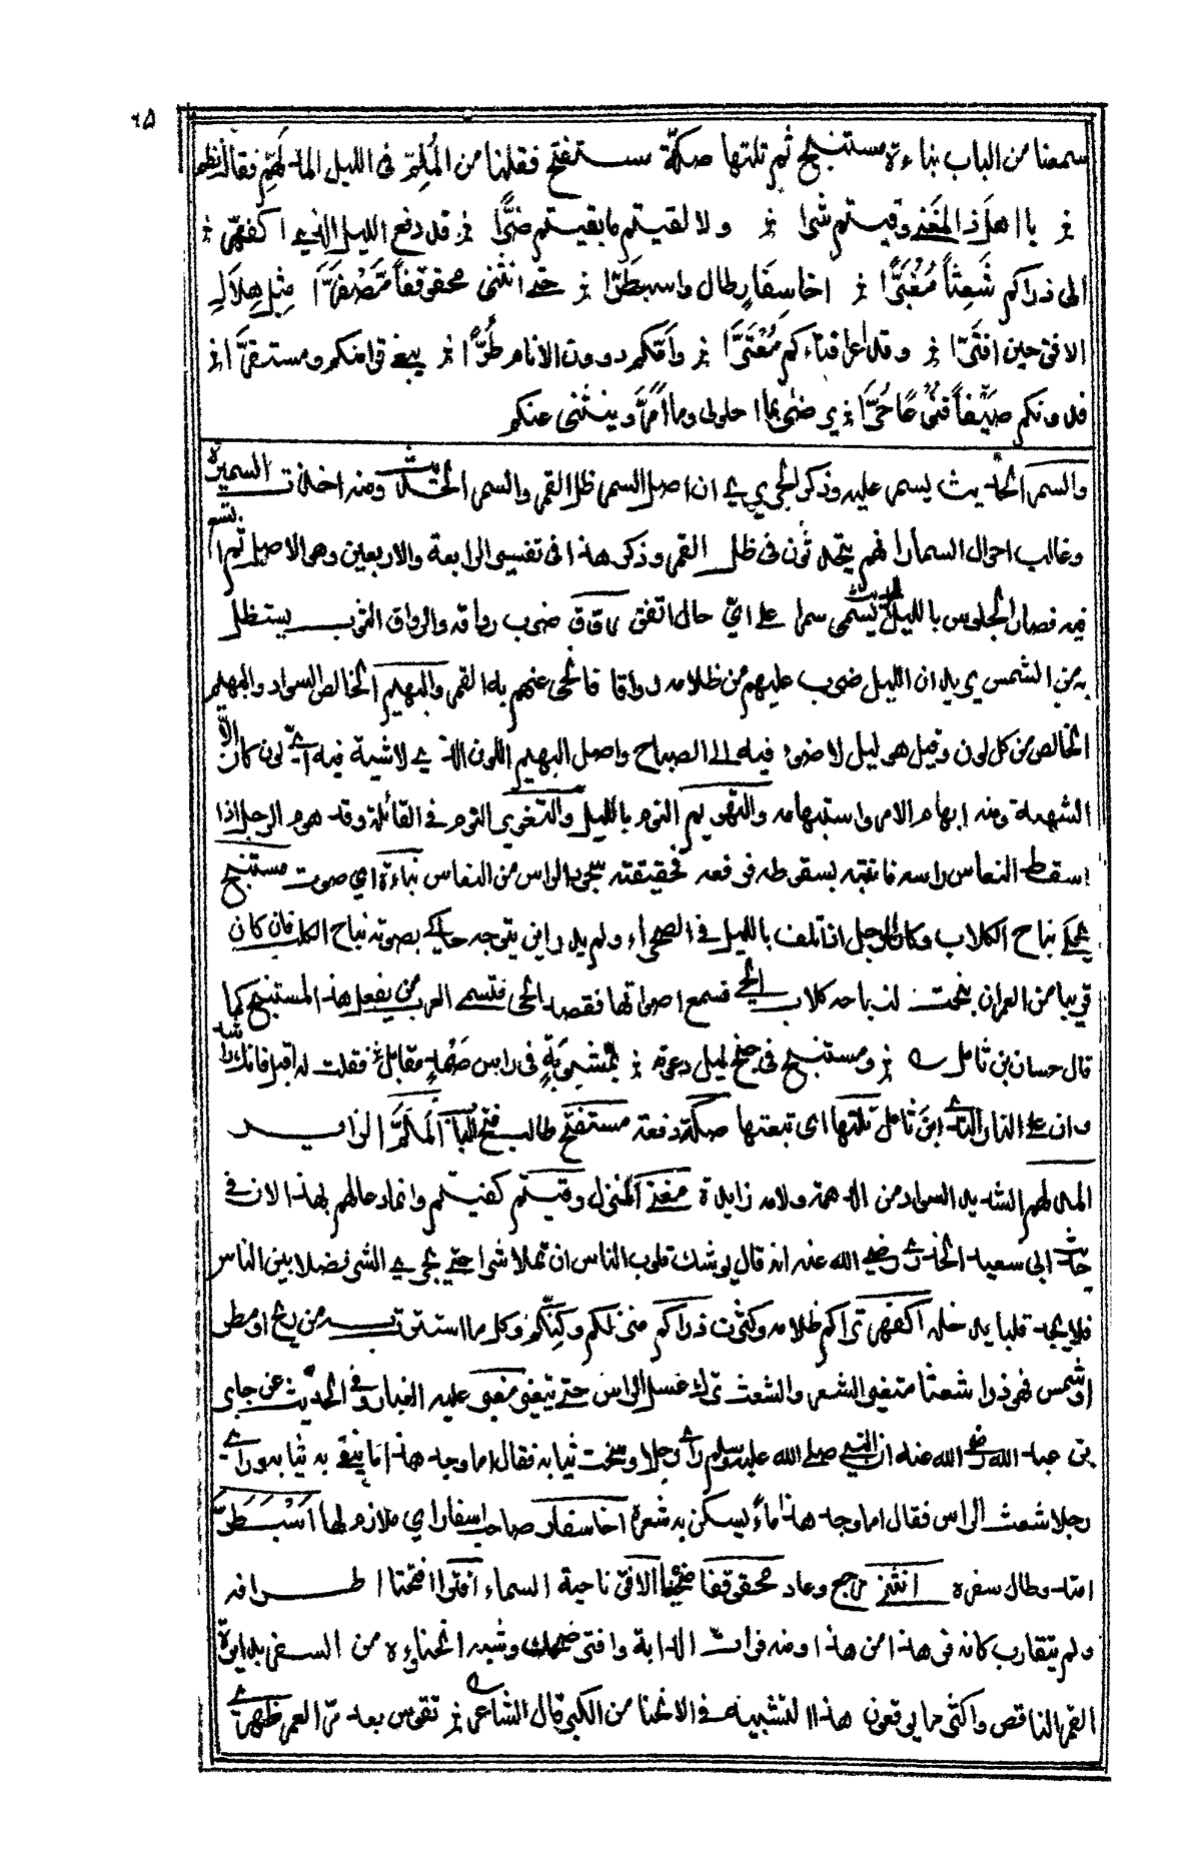 ٦٥
سمعنا من الباب نباءة مستنبح ثم تلتها صكة مستفتح فقلنا من الملم فى الليل المدلهم فقال نظم
يا اهل ذا المغنى وقيتم شرا ولا لقيتم ما بقيتم ضرا قد دفع الليل الذي اكفهرّ
الى ذراكم شَعِثاً مُغْبَرًّا اخا سفارٍ طال واسبطرّا حتى انثنى محقوقفاً مُصْفَرّاً مِثل هِلال
الافق حين افترّا وقد عرا فناءكم مُعْتَرًّا وامّكم دون الانام طُرًّا يبغي قرا منكم ومستقرّا
فدونكم ضيفاً قنوعًا حُرّا يرضى بما احلولى وما امرّا وينثنى عنكم
والسمر الحديث يسمر عليه وذكر الحريري ان اصل السمر ظل القمر والسمر الحديث ومنه اخذت السميرة
وغالب احوال السمار انهم يتحدثون فى ظل القمر وذكر هذا فى تفسير الرابعة والاربعين وهو الاصل ثم اتسع
فيه فصار الجلوس بالليل للحديث يسمى سمرا على اي حال اتفق رواق ضرب رواقه والرواق الثوب يستظل
به من الشمس يريد ان الليل ضرب عليهم من ظلامه رواقا فانجى عنهم به القمر والبهيم الخالص السواد والبهيم
الخالص من كل لون وقيل هو ليل لا ضوء فيه الى الصباح واصل البهيم اللون الذي لا شية فيه اي لون كان الا
الشهبة ومنه ابهام الامر واستبهامه والتهويم النوم بالليل والتغوير النوم فى القائلة وقد هوم الرجل اذا
اسقط النعاس راسه فانتبه بسقوطه فرفعه فحقيقته تحريك الراس من النعاس نباءة اي صوت مستنبح
يحكي نباح الكلاب وكان الرجل اذا تلف بالليل فى الصحراء ولم يدر اين يتوجه حاكى بصوته نباح الكلب فان كان
قريبا من العمران نبحت لنباحه كلاب الحي فسمع اصواتها فقصد الحى فتسمى العرب من يفعل هذا المستنبح كما
قال حسان بن ثامل ومستنبح فى جنح ليل دعوته بمشبوبةٍ فى راس صَمْدٍ مقابل فقلت له اقبل فانك راشد
وان على النار الندى وابن ثامل تلتها اى تبعتها صكة دفعة مستفتح طالب فتح الباب المُلِمّ الزايد
المدلهم الشديد السواد من الدهمة ولامه زايدة مغنى المنزل وقيتم كفيتم وانما دعا لهم بهذا لان فى
حديث ابى سعيد الخدري رضي الله عنه انه قال يوشك قلوب الناس ان تملا شرا حتى يجري الشر فضلا بين الناس
فلا يجد قلبا يدخله اكفهر تراكم ظلامه وكثرت ذراكم منزلكم وكِنّكم وكل ما استترت به من ريح او مطر
او شمس فهو ذرا شعثا متغير الشعر والشعث ترك غسل الراس حتى يتغير مغبر عليه الغبار وفى الحديث عن جابر
بن عبد الله رضي الله عنه ان النبي صلى الله عليه وسلم رأى رجلا وسخت ثيابه فقال اما وجد هذا ما ينقي به ثيابه ورأى
رجلا شعث الراس فقال اما وجد هذا ماءً يسكن به شعره اخا سفار صاحب اسفار اي ملازم لها اسْبَطَرّ
امتد وطال سفره انثنى رجع وعاد محقوقفا منحنيا الافق ناحية السماء افترا افتتحتا اطرافه
ولم يتقارب كانه فر هذا من هذا ومنه فررت الدابة وافتر ضحك وشبه انحناءه من السفر بدايرة
القمر الناقص واكثر ما يوقعون هذا التشبيه فى الانحنا من الكبر قال الشاعر تقوس بعد مرّ العمر ظهري